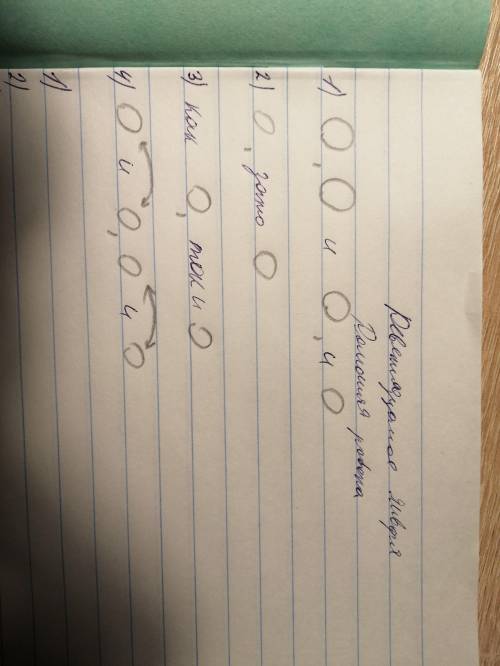 Девятнадцатое января
Домашняя работа
1) О, О и О, и О
2) О, зато О
3) как О, так и О
4) О и О, О и О
1)
2)